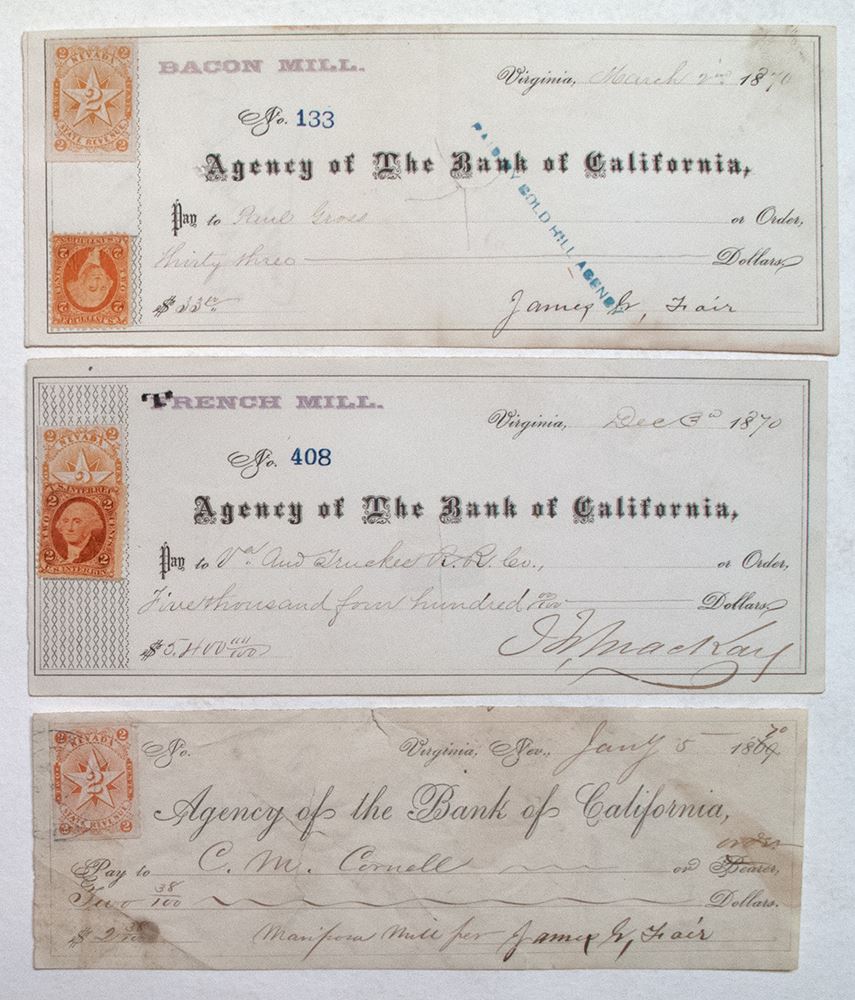 2 NEVADA 2
2
STATE REVENUE
2 2
BACON MILL.
Virginia, March 2nd 1870
No. 133
Agency of The Bank of California,
PAID BY GOLD HILL AGENCY
Pay to Gross or Order,
Thirty three Dollars,
$33
James G, Fair
2 2
U.S. INTER. REV.
FRENCH MILL.
Virginia, Dec 3d 1870
No. 408
Agency of The Bank of California,
2 NEVADA 2
U.S. INTER. REV.
TWO CENTS
2 2
Pay to Va. And Truckee R. R. Co., or Order,
Five thousand four hundred 00/100 Dollars,
$5,400 00/100
J W Mackay
2 NEVADA 2
2
STATE REVENUE
2 2
No. Virginia, Nev., Jany 5 1869 70
Agency of the Bank of California,
order
Pay to C. M. Cornell or Bearer,
Two 38/100 Dollars.
$2 38/100
Mariposa Mill per James G, Fair